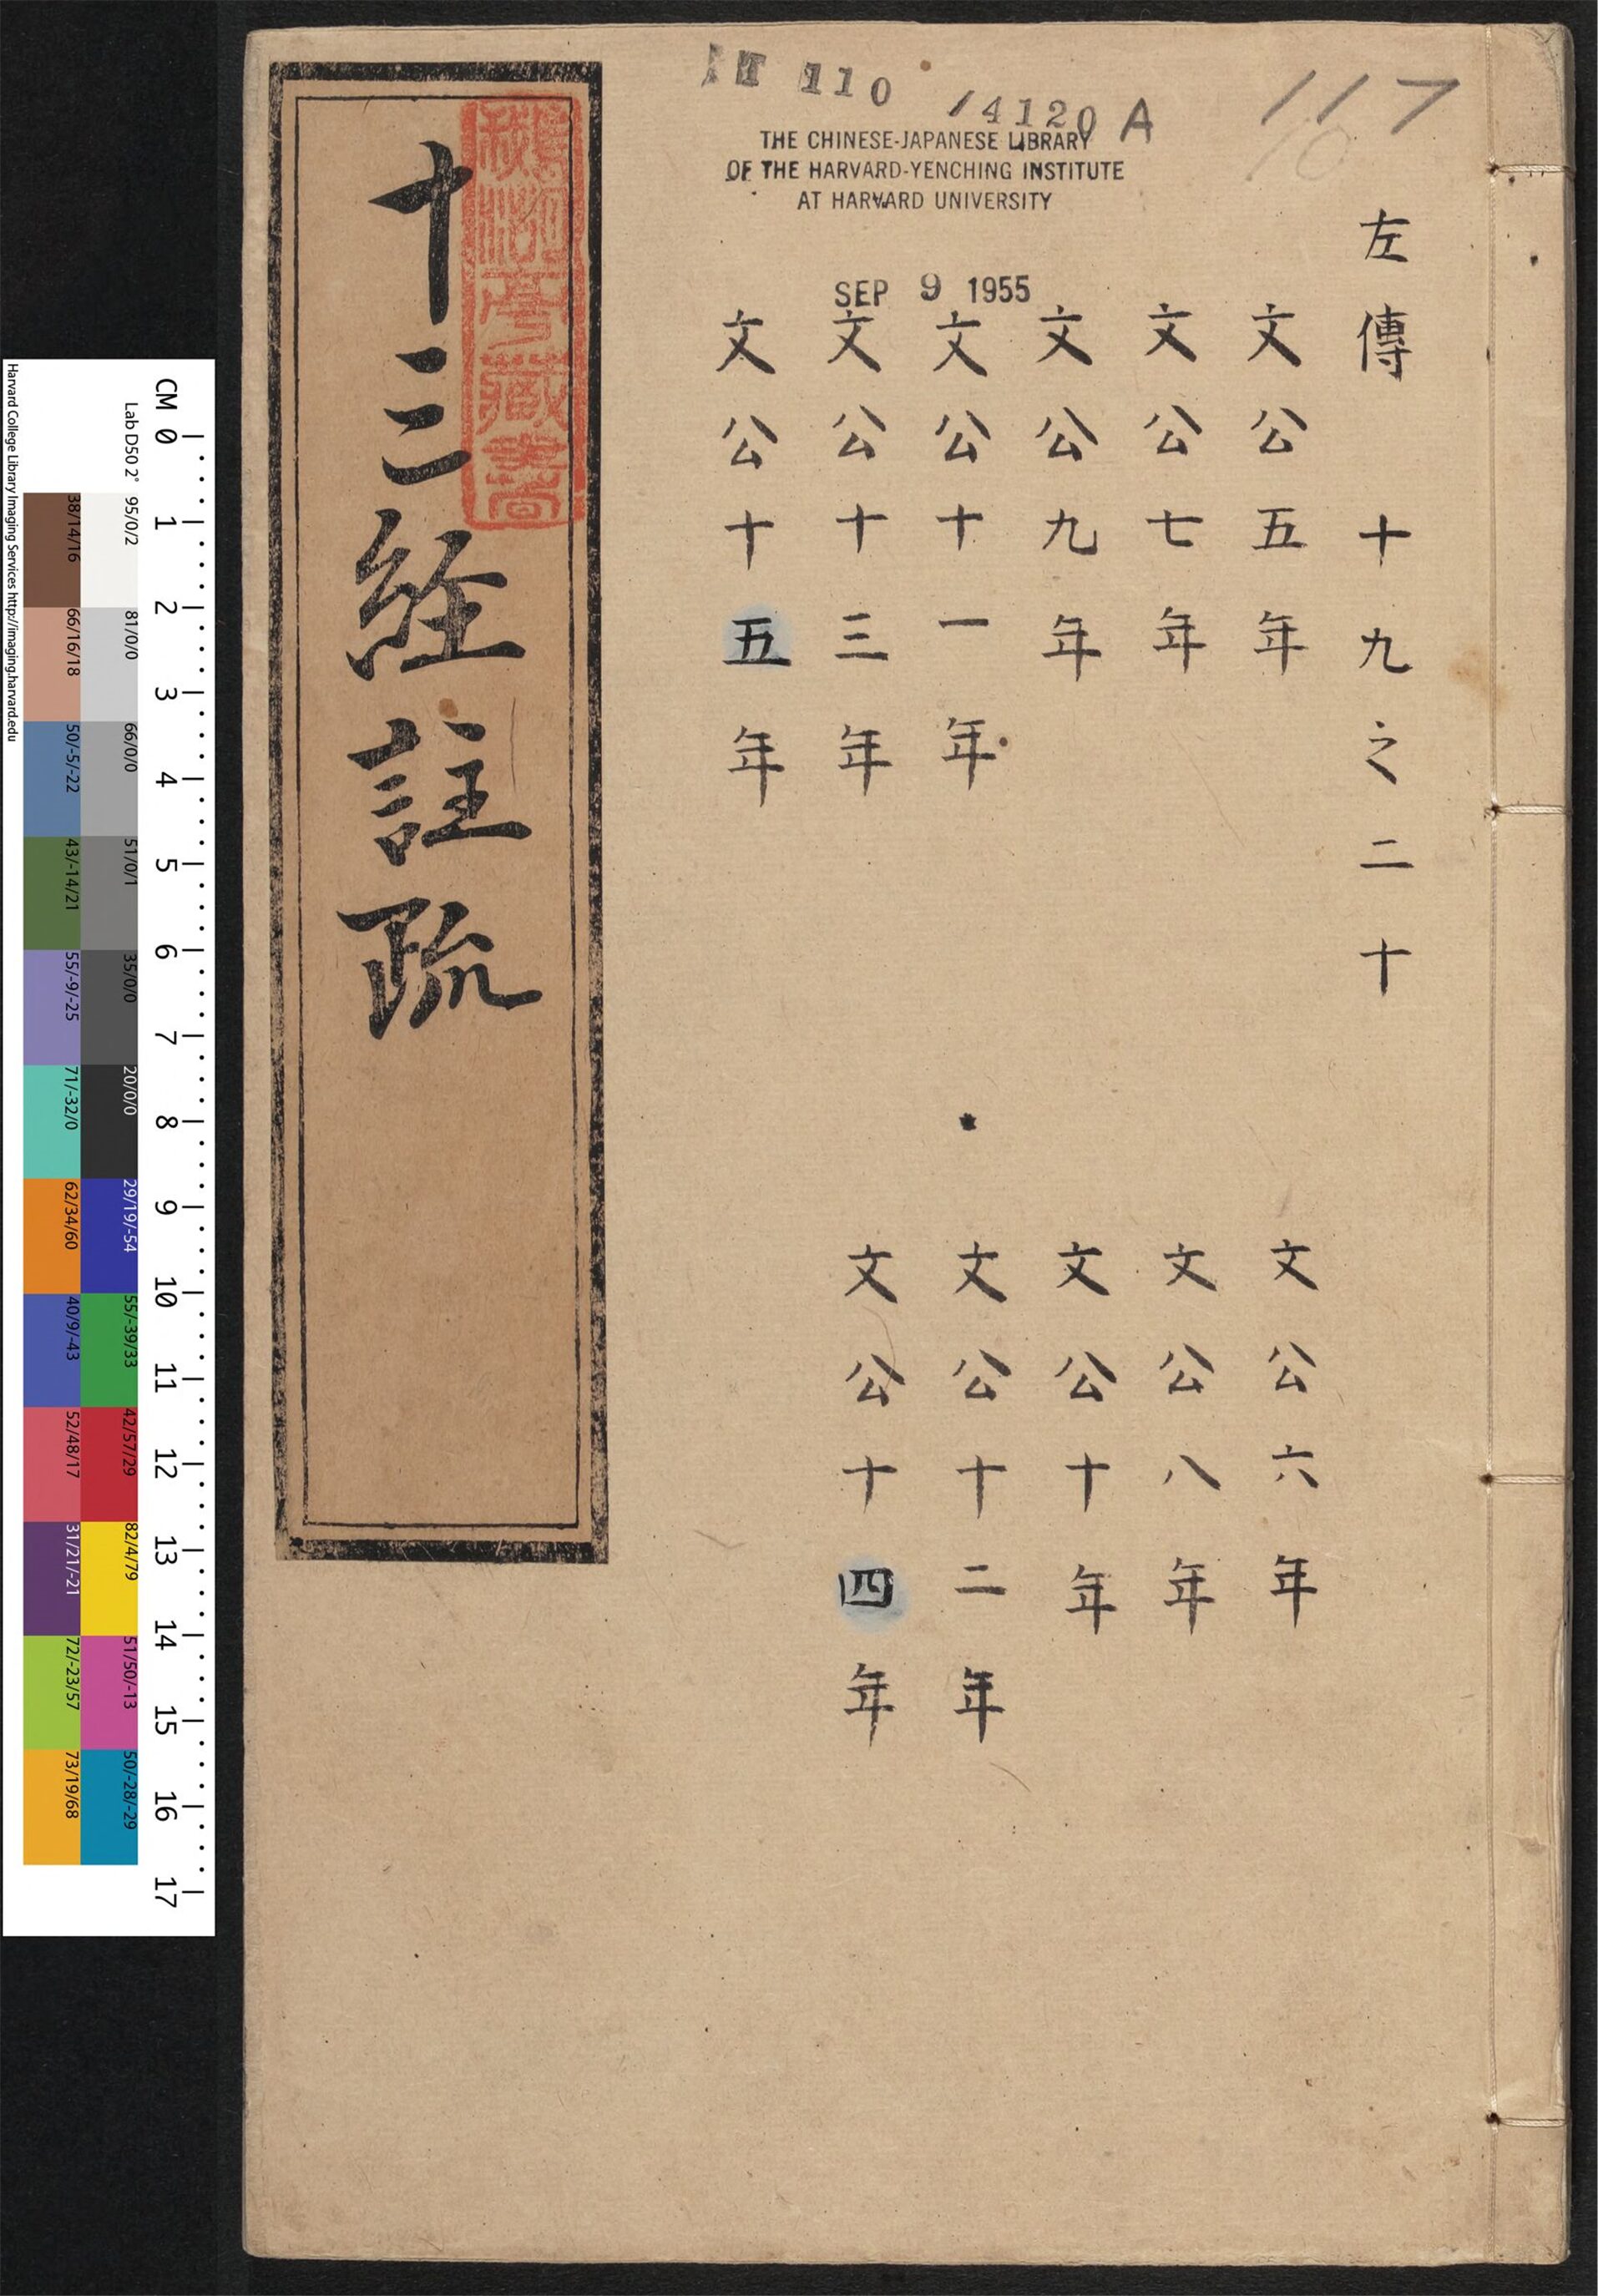 110
14120 A
117
10
THE CHINESE-JAPANESE LIBRARY
OF THE HARVARD-YENCHING INSTITUTE
AT HARVARD UNIVERSITY
SEP 9 1955
左傳 十九之二十
文公五年
文公六年
文公七年
文公八年
文公九年
文公十年
文公十一年
文公十二年
文公十三年
文公十四年
文公十五年
十三経註疏
CM 0 1 2 3 4 5 6 7 8 9 10 11 12 13 14 15 16 17
Lab D50 2° 95/0/2 81/0/0 66/0/0 51/0/1 35/0/0 20/0/0 29/19/-54 55/-39/33 42/57/29 82/4/79 51/50/-13 50/-28/-29
38/14/16 66/16/18 50/-5/-22 43/-14/21 55/-9/-25 71/-32/0 62/34/60 40/9/-43 52/48/17 31/21/-21 72/-23/57 73/19/68
Harvard College Library Imaging Services http://imaging.harvard.edu